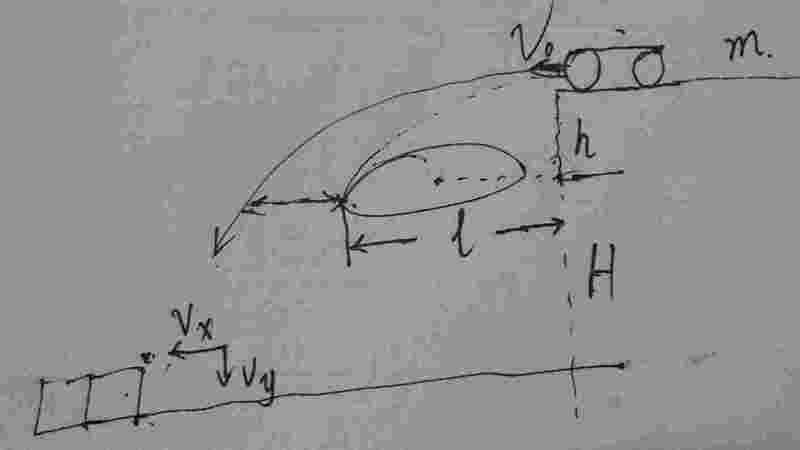 V₀
m.
h
l
H
Vx
Vy